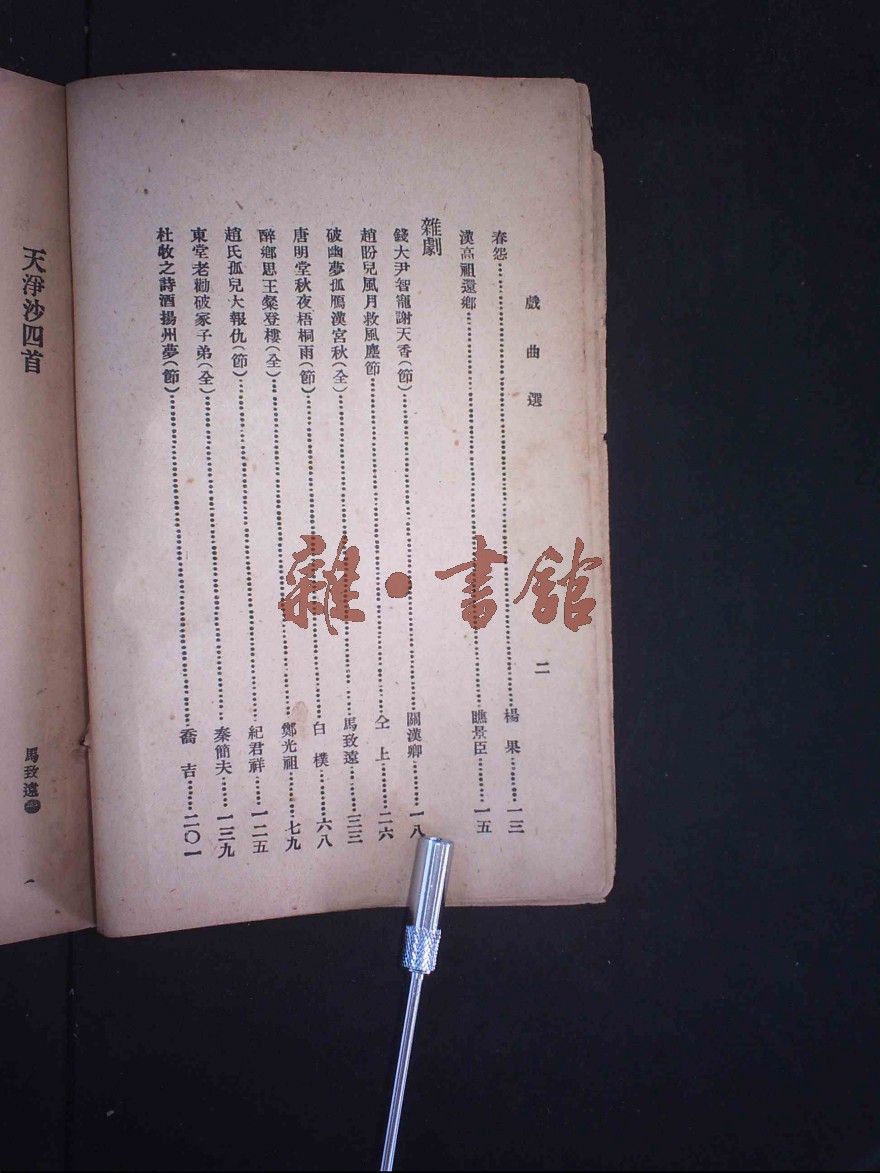 戲曲選
二
春怨……楊果……一三
漢高祖還鄉……睢景臣……一五
雜劇
錢大尹智寵謝天香(節)……關漢卿……一八
趙盼兒風月救風塵節……仝上……二六
破幽夢孤鴈漢宮秋(全)……馬致遠……三三
唐明堂秋夜梧桐雨(節)……白樸……六八
醉鄉思王粲登樓(全)……鄭光祖……七九
趙氏孤兒大報仇(節)……紀君祥……一二五
東堂老勸破家子弟(全)……秦簡夫……一三九
杜牧之詩酒揚州夢(節)……喬吉……二〇一
天淨沙四首
馬致遠
一
雜·書館